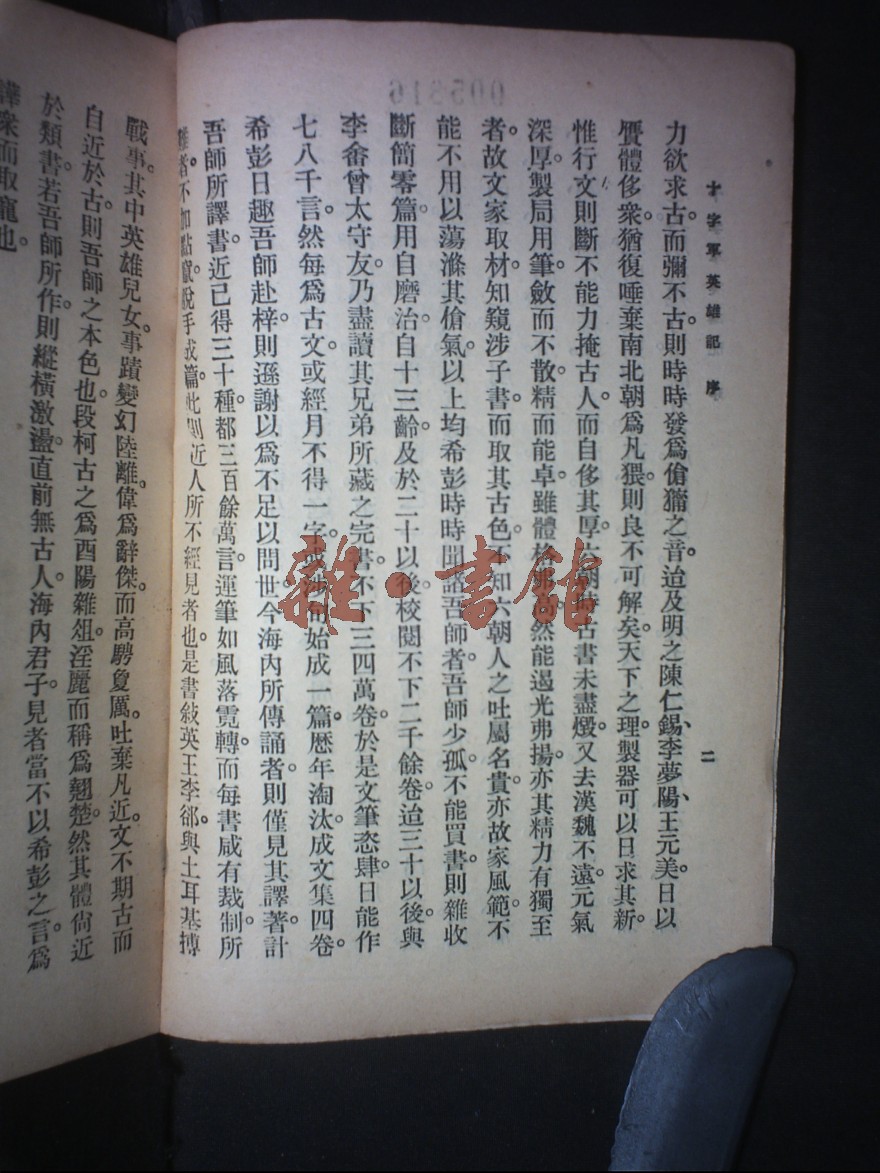 005316
十字軍英雄記 序
二
力欲求古。而彌不古。則時時發爲傖獝之音。迨及明之陳仁錫、李夢陽、王元美。日以
贋體侈衆。猶復唾棄南北朝爲凡猥。則良不可解矣。天下之理。製器可以日求其新。
惟行文則斷不能力掩古人。而自侈其厚。六朝時古書未盡燬。又去漢魏不遠。元氣
深厚。製局用筆。斂而不散。精而能卓。雖體格 然能遏光弗揚。亦其精力有獨至
者。故文家取材。知窺涉子書。而取其古色。不知六朝人之吐屬名貴。亦故家風範。不
能不用以蕩滌其傖氣。以上均希彭時時聞諸吾師者。吾師少孤。不能買書。則雜收
斷簡零篇。用自磨治。自十三齡。及於二十以後。校閱不下二千餘卷。迨三十以後。與
李畬曾太守友。乃盡讀其兄弟所藏之完書。不下三四萬卷。於是文筆恣肆。日能作
七八千言。然每爲古文。或經月不得一字。或涉旬始成一篇。歷年淘汰成文集四卷。
希彭日趣吾師赴梓。則遜謝以爲不足以問世。今海內所傳誦者。則僅見其譯著。計
吾師所譯書。近已得三十種。都三百餘萬言。運筆如風落霓轉。而每書咸有裁制。所
難者。不加點竄。脫手成篇。此則近人所不經見者也。是書敍英王李卻與土耳基搏
戰事。其中英雄兒女。事蹟變幻陸離。偉爲辭傑。而高騁敻厲。吐棄凡近。文不期古而
自近於古。則吾師之本色也。段柯古之爲酉陽雜俎。淫麗而稱爲翹楚。然其體尙近
於類書。若吾師所作。則縱橫激盪。直前無古人。海內君子。見者當不以希彭之言。爲
譁衆而取寵也。
雜·書館